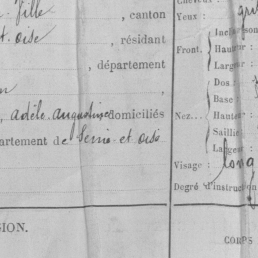 Ville, canton
et oise, résidant
, département
, adèle augustine domiciliés
partement de Seine et oise
SION.
Cheveux :
Yeux : gris
Inclinaison
Front. Hauteur
Largeur
Dos :
Base
Nez... Hauteur
Saillie
Largeur
Visage : long
Degré d'instruction
CORPS